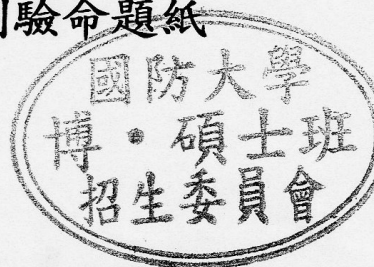 驗命題紙
國防大學
博·碩士班
招生委員會